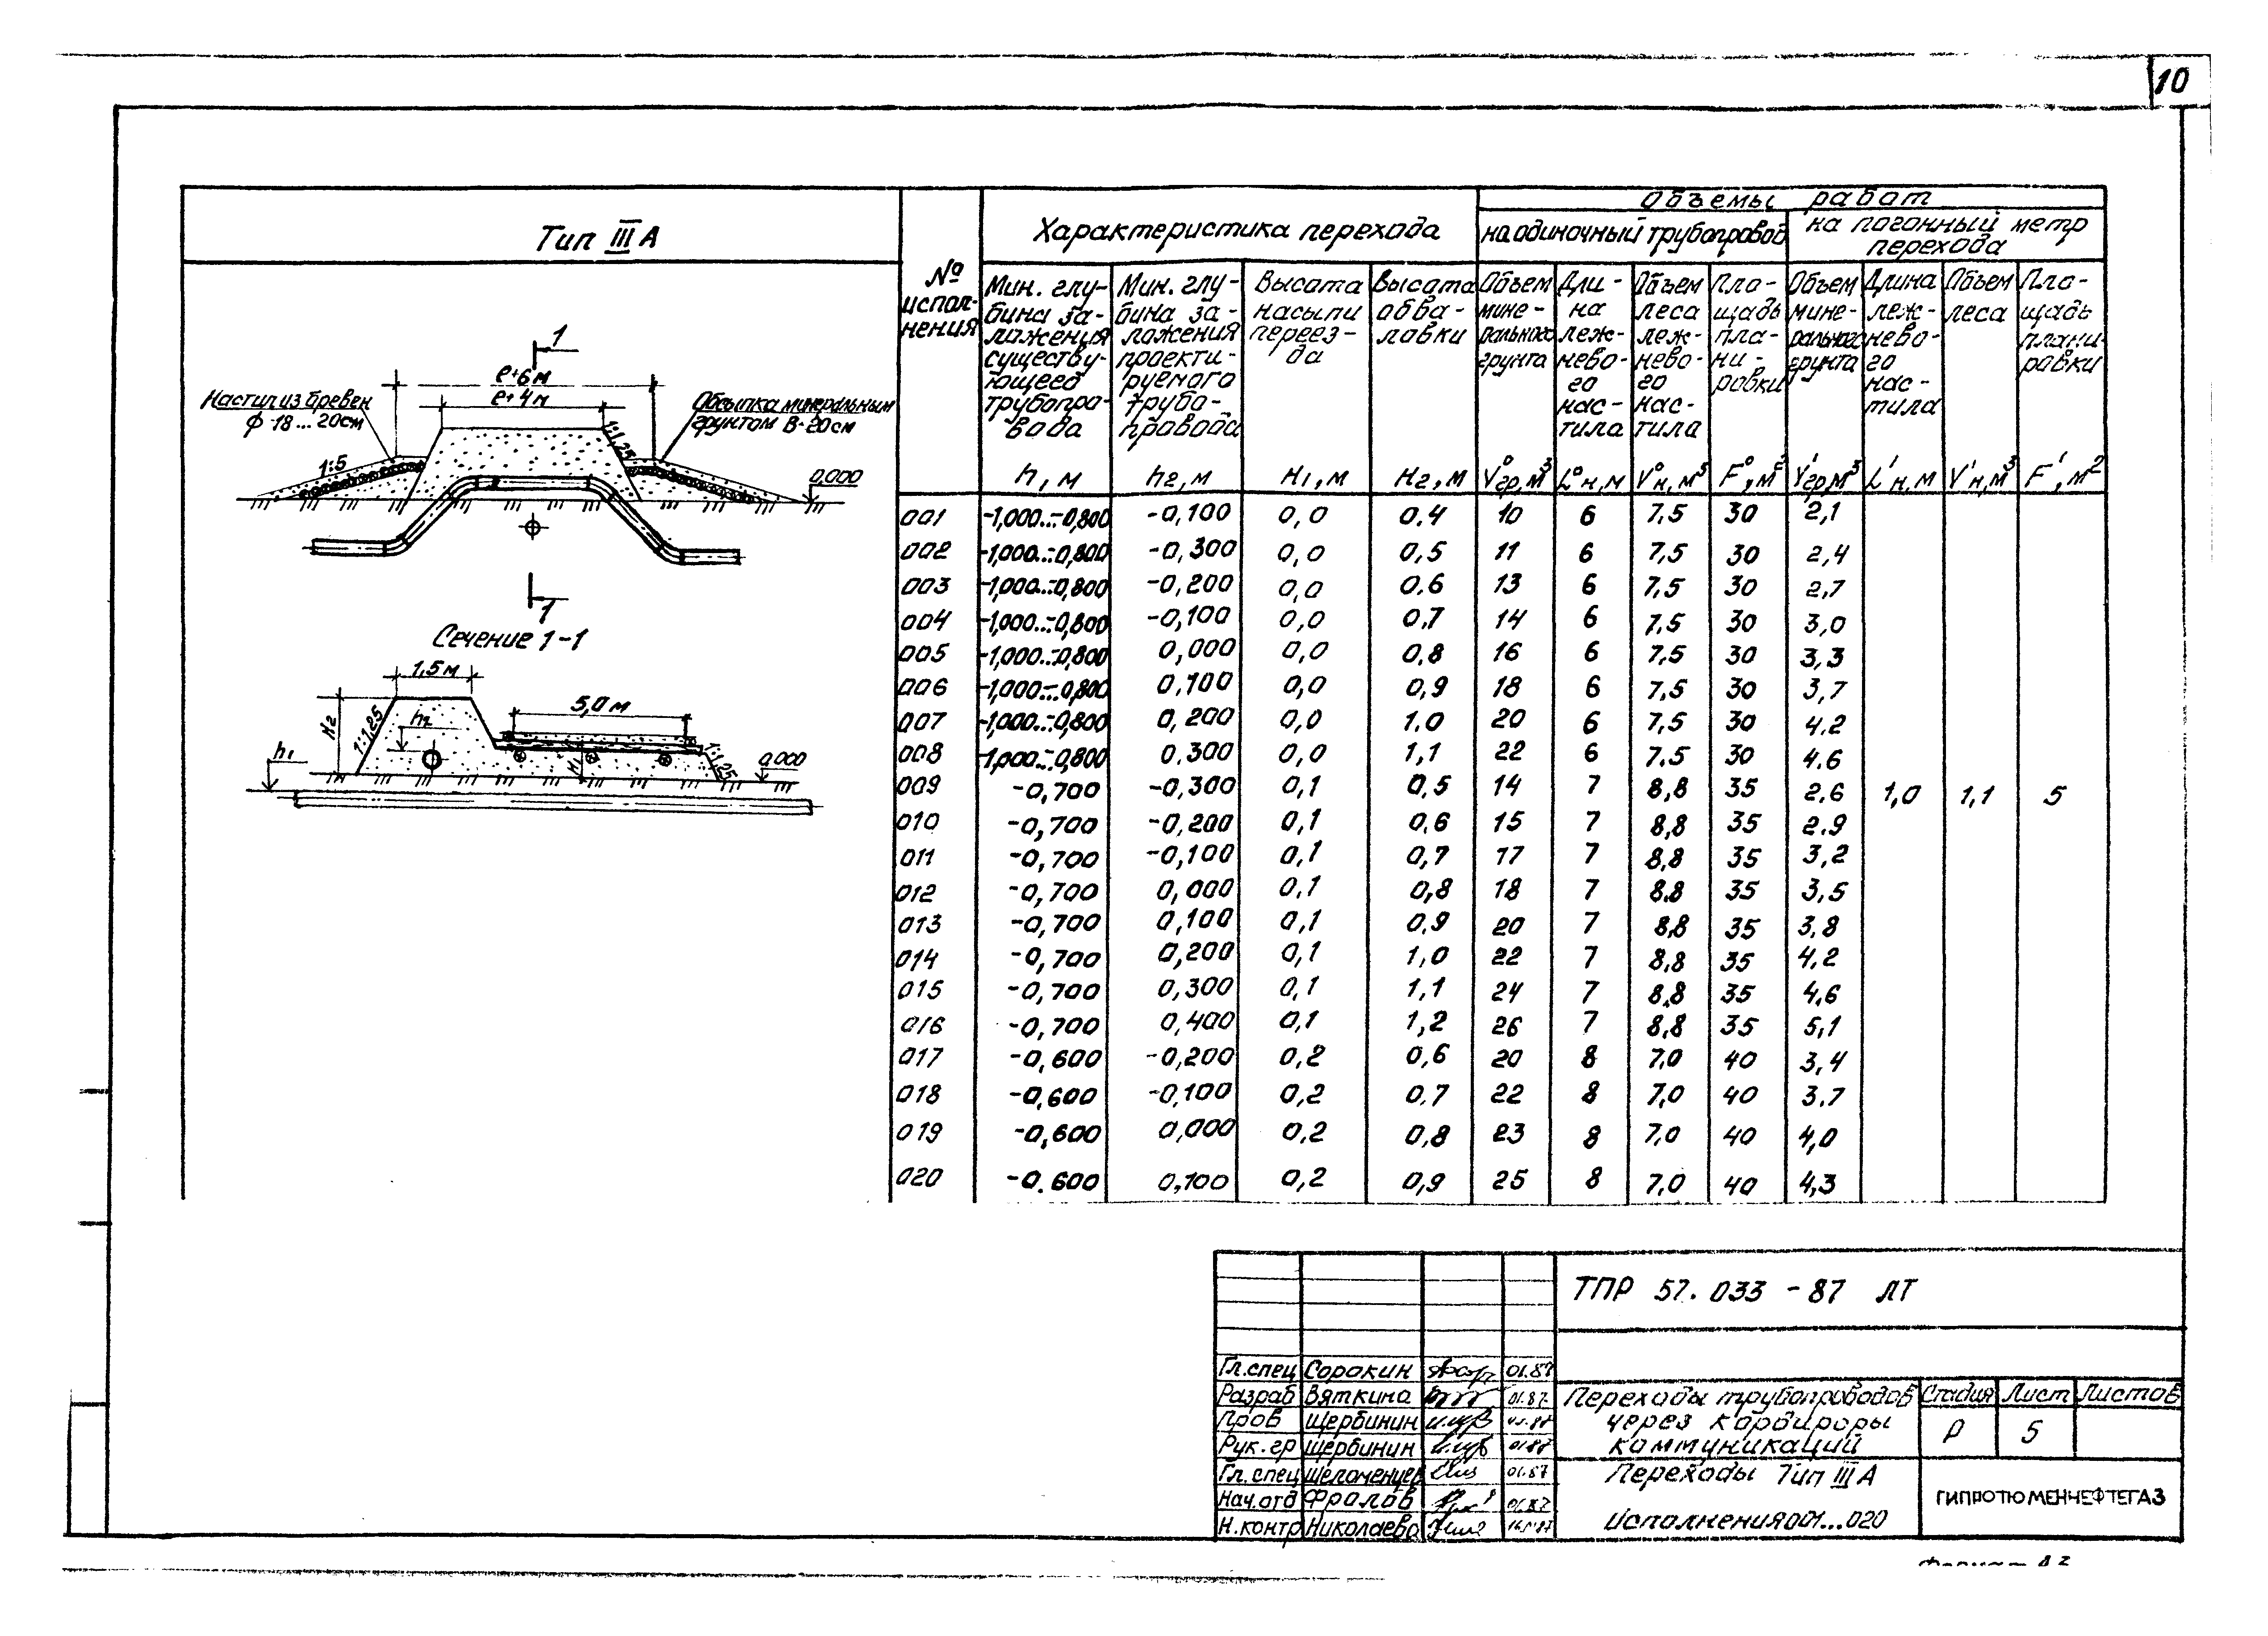 10
Тип III А
№ исполнения
Характеристика перехода
Объемы работ
на одиночный трубопровод
на погонный метр перехода
Мин. глубина заложения существующего трубопровода h1, м
Мин. глубина заложения проектируемого трубопровода h2, м
Высота насыпи переезда H1, м
Высота обваловки H2, м
Объем минерального грунта V⁰гр, м³
Длина лежневого настила L⁰н, м
Объем леса лежневого настила V⁰н, м³
Площадь планировки F⁰, м²
Объем минерального грунта V'гр, м³
Длина лежневого настила L'н, м
Объем леса V'н, м³
Площадь планировки F', м²
1
е+6м
е+4м
Настил из бревен
ф 18...20см
Обсыпка минеральным
грунтом В-20см
1:5
1:1,25
0,000
1
Сечение 1-1
1,5м
5,0м
H2
1:1,25
h2
h1
H1
1:1,25
0,000
001 -1,000...-0,800 -0,100 0,0 0,4 10 6 7,5 30 2,1
002 -1,000...-0,800 -0,300 0,0 0,5 11 6 7,5 30 2,4
003 -1,000...-0,800 -0,200 0,0 0,6 13 6 7,5 30 2,7
004 -1,000...-0,800 -0,100 0,0 0,7 14 6 7,5 30 3,0
005 -1,000...-0,800 0,000 0,0 0,8 16 6 7,5 30 3,3
006 -1,000...-0,800 0,100 0,0 0,9 18 6 7,5 30 3,7
007 -1,000...-0,800 0,200 0,0 1,0 20 6 7,5 30 4,2
008 -1,000...-0,800 0,300 0,0 1,1 22 6 7,5 30 4,6
009 -0,700 -0,300 0,1 0,5 14 7 8,8 35 2,6 1,0 1,1 5
010 -0,700 -0,200 0,1 0,6 15 7 8,8 35 2,9
011 -0,700 -0,100 0,1 0,7 17 7 8,8 35 3,2
012 -0,700 0,000 0,1 0,8 18 7 8,8 35 3,5
013 -0,700 0,100 0,1 0,9 20 7 8,8 35 3,8
014 -0,700 0,200 0,1 1,0 22 7 8,8 35 4,2
015 -0,700 0,300 0,1 1,1 24 7 8,8 35 4,6
016 -0,700 0,400 0,1 1,2 26 7 8,8 35 5,1
017 -0,600 -0,200 0,2 0,6 20 8 7,0 40 3,4
018 -0,600 -0,100 0,2 0,7 22 8 7,0 40 3,7
019 -0,600 0,000 0,2 0,8 23 8 7,0 40 4,0
020 -0,600 0,100 0,2 0,9 25 8 7,0 40 4,3
ТПР 57.033-87 ЛТ
Гл.спец Сорокин 01.87
Разраб Вяткина 01.87
Пров Щербинин
Рук.гр Щербинин 01.87
Гл.спец Шеломенцев 01.87
Нач.отд Фролов 01.87
Н.контр Николаева
Переходы трубопроводов
через коридоры
коммуникаций
Стадия Лист Листов
Р 5
Переходы Тип III А
Исполнения 001...020
ГИПРОТЮМЕННЕФТЕГАЗ
Формат А3